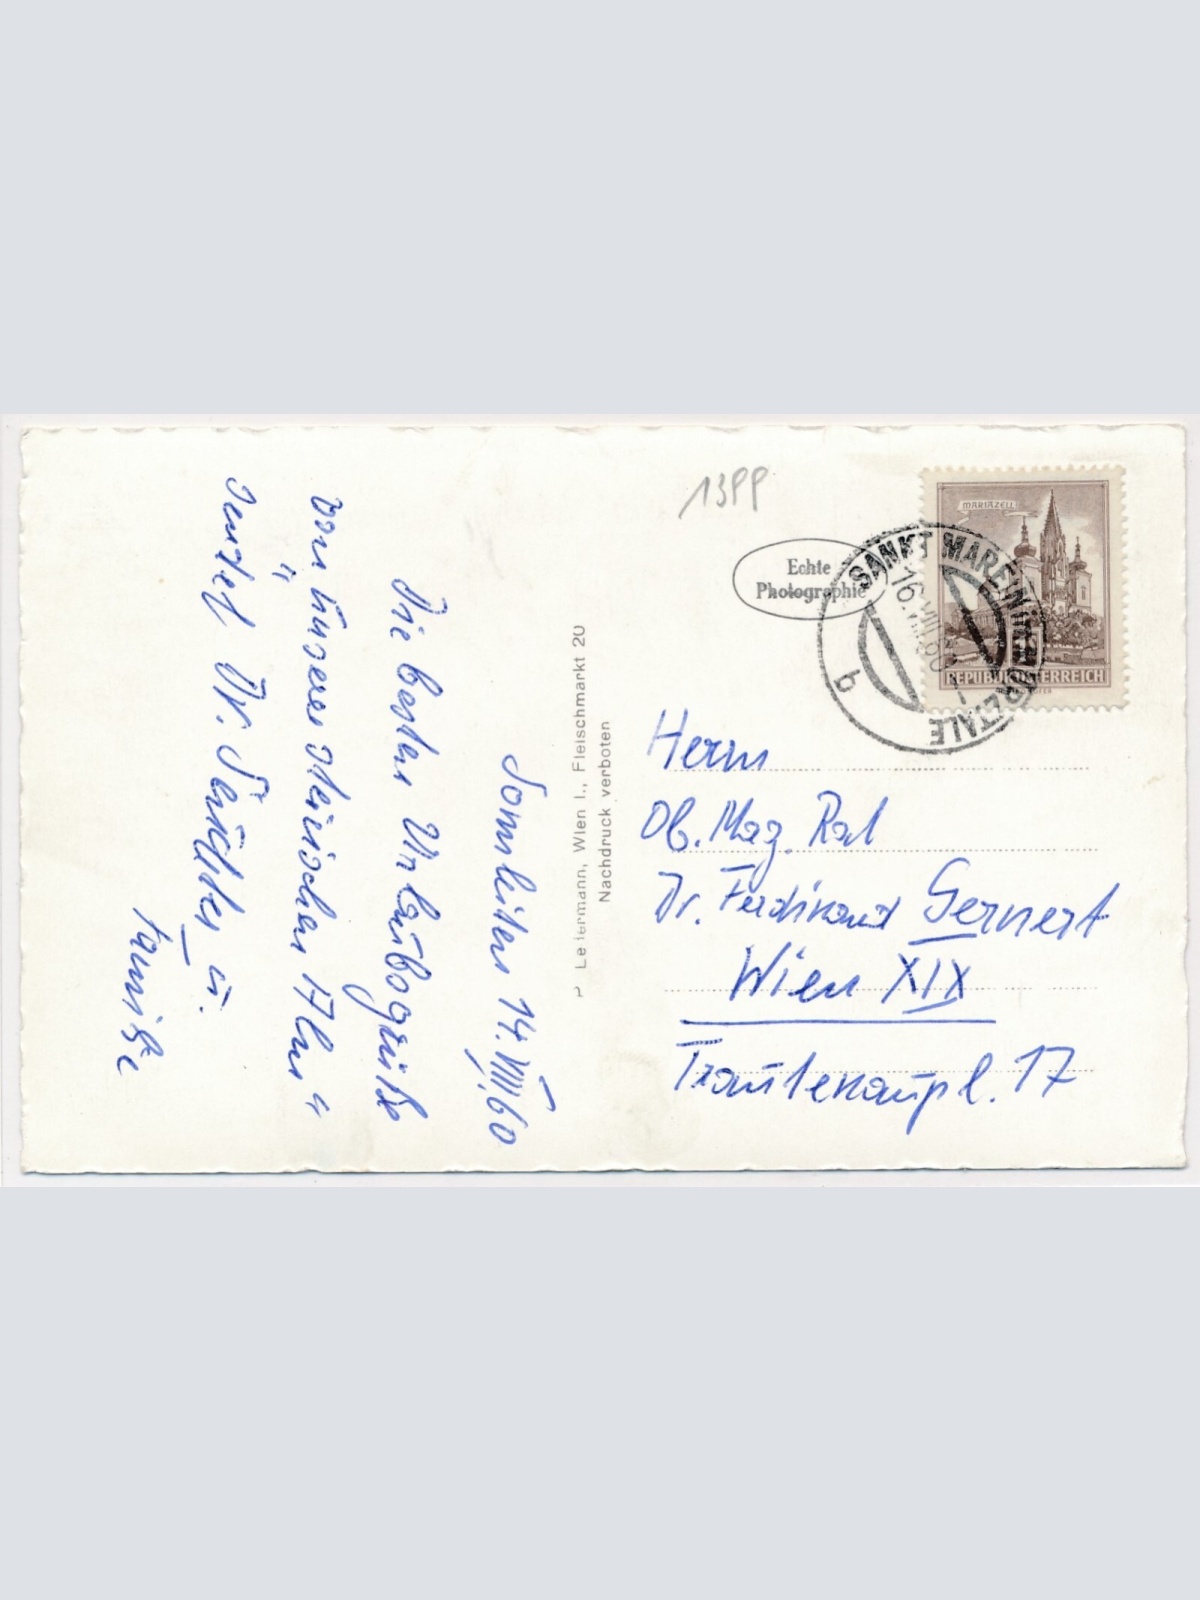 13PP
Echte
Photographie
MARIAZELL
REPUBLIK ÖSTERREICH
SANKT MAREIN IM MÜRZTALE
16.VIII.60
b
P. Ledermann, Wien I., Fleischmarkt 20
Nachdruck verboten
Herrn
Ob. Mag. Rat
Dr. Ferdinand Gernert
Wien XIX
Trautenaupl. 17
Sonnleiten 14.VIII.60
Die besten Urlaubsgrüße
von unserer steirischen "Alm"
sendet Dr.
u.
Familie